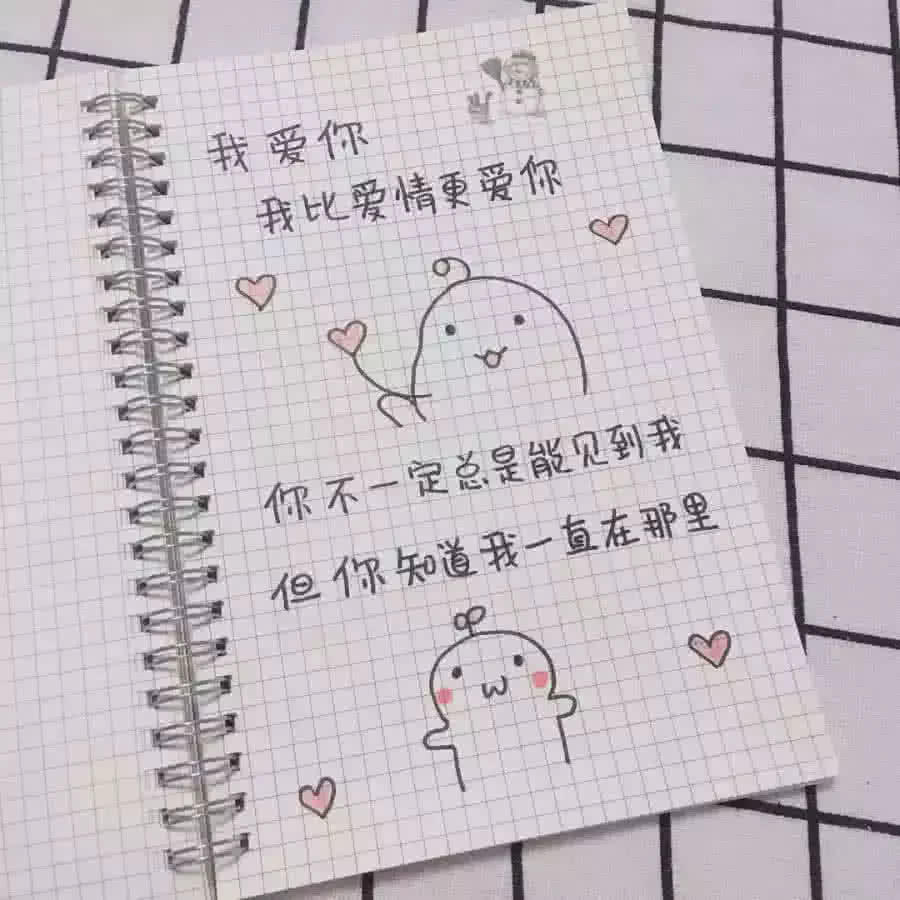 我爱你
我比爱情更爱你
你不一定总是能见到我
但你知道我一直在那里